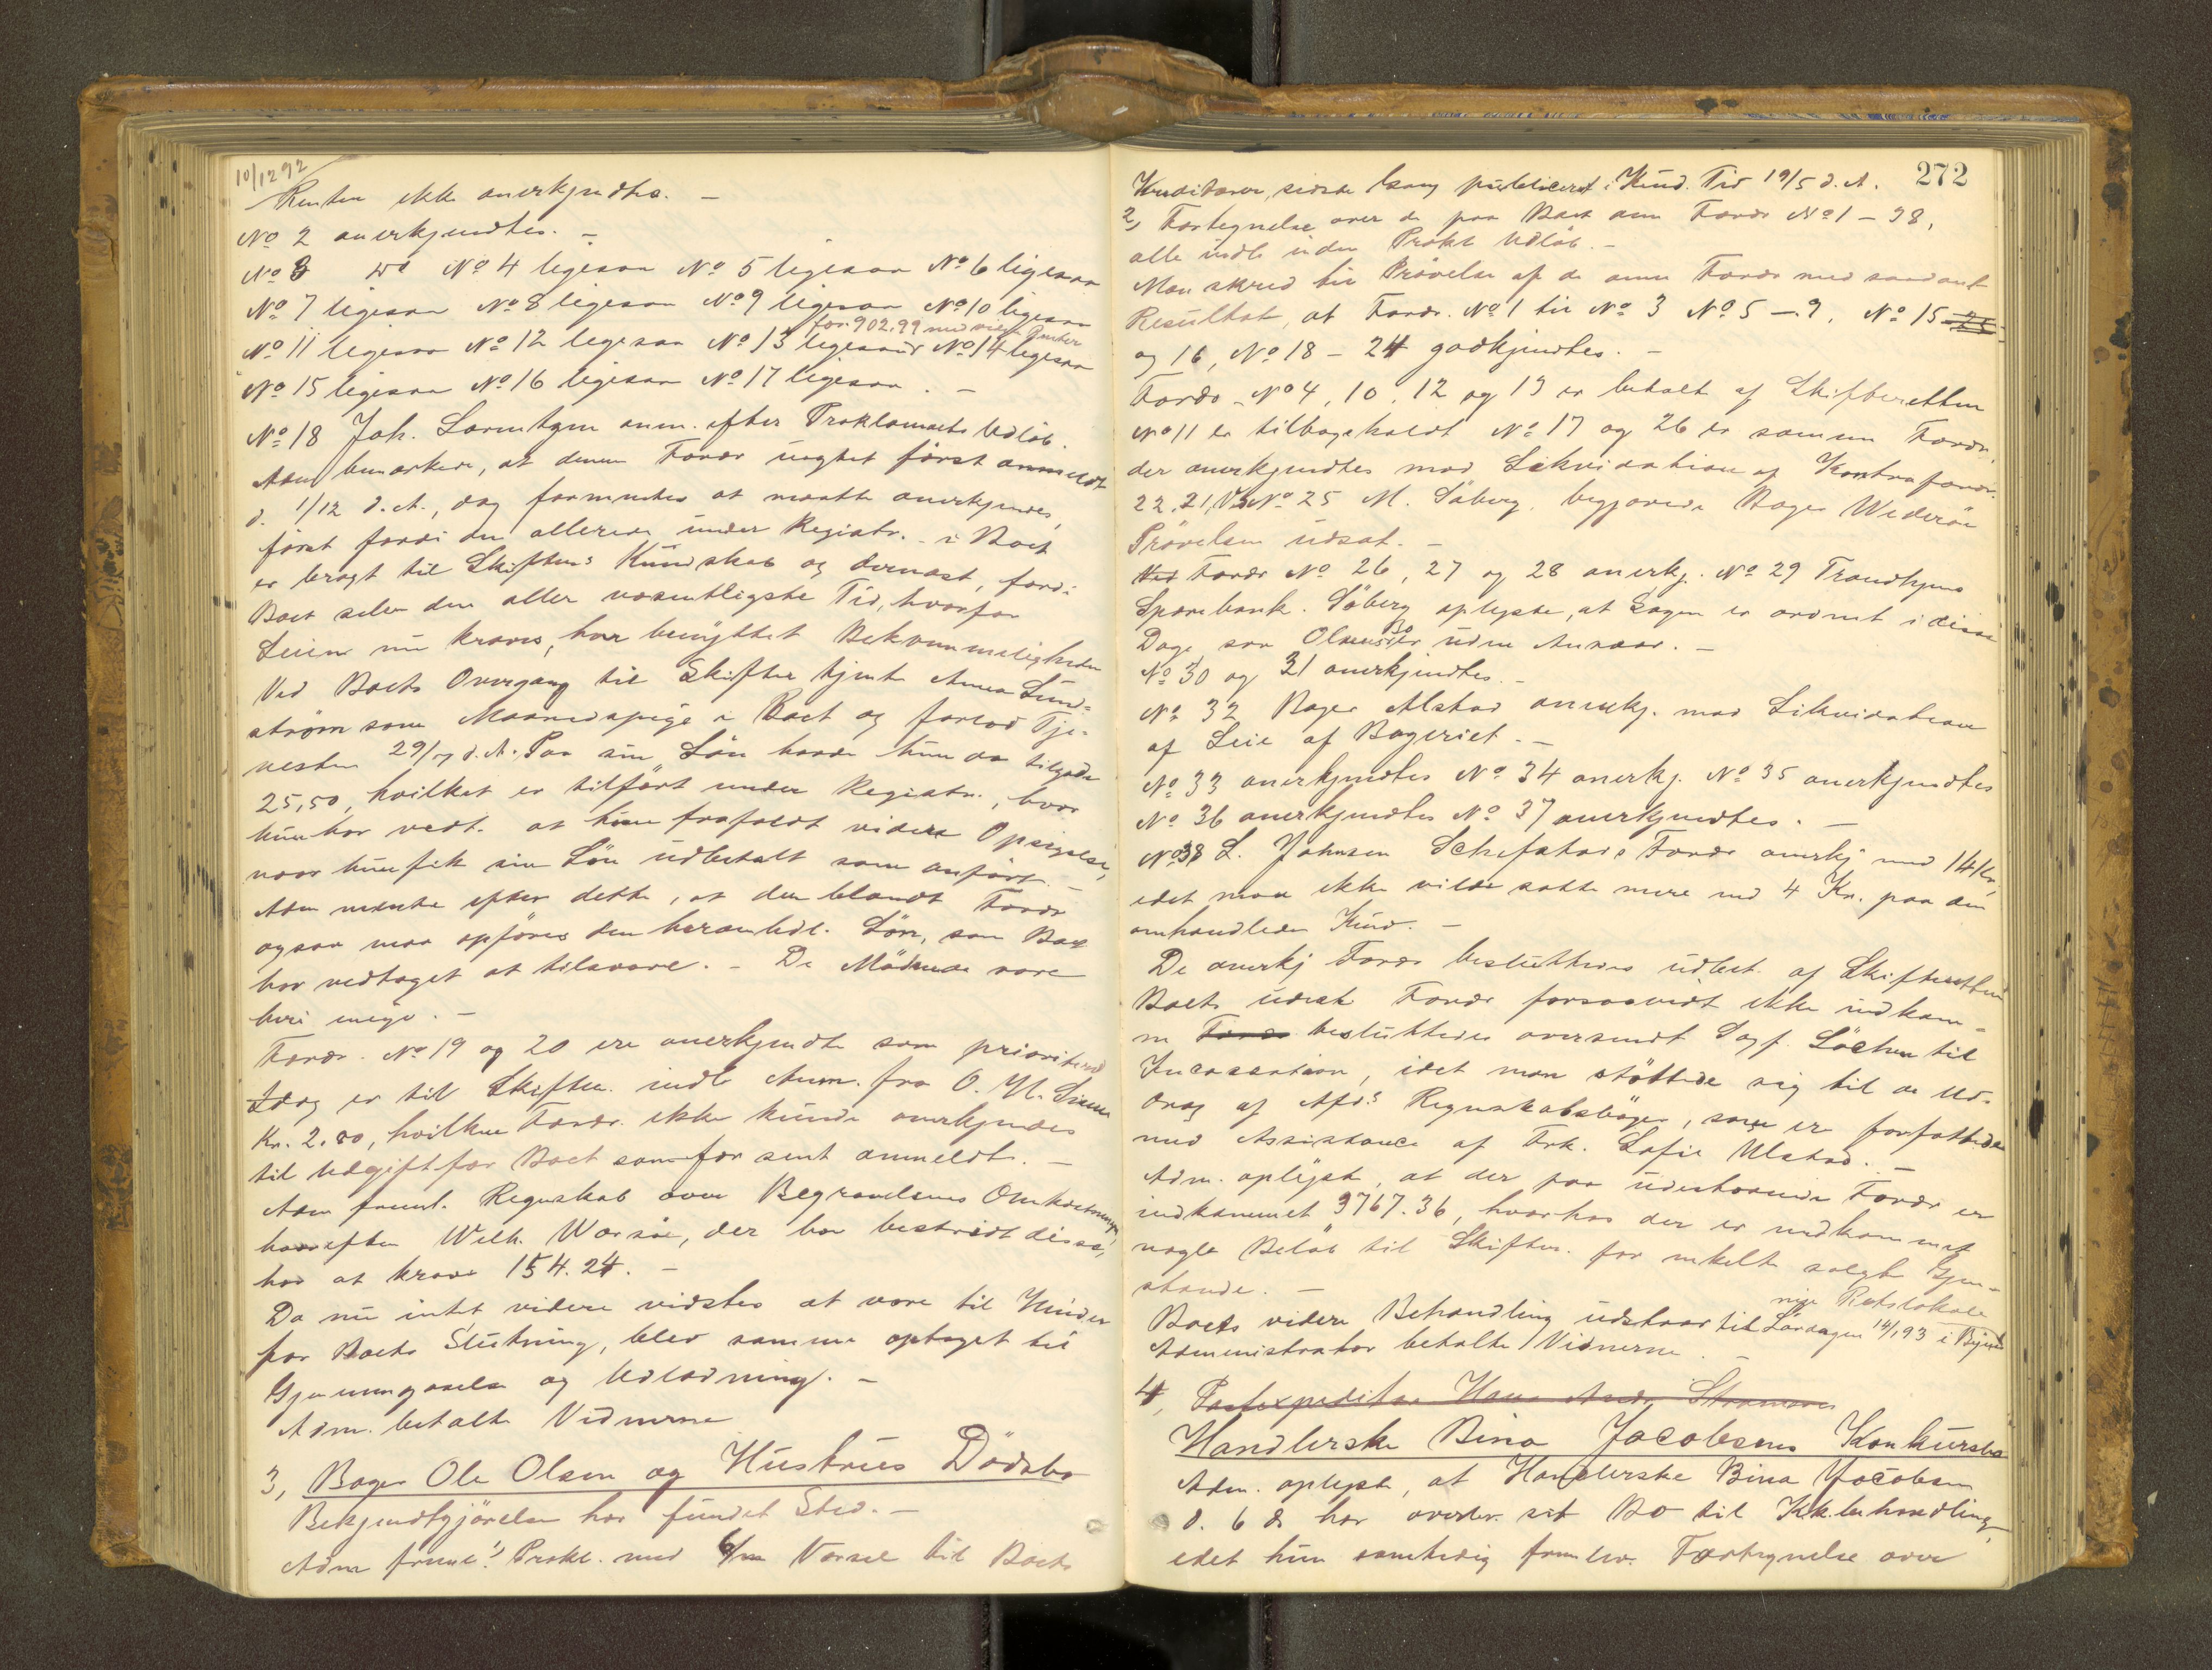 10/12 92
Renten ikke anerkjendtes. -
No 2 anerkjendtes. -
No 3 do No 4 ligesaa No 5 ligesaa No 6 ligesaa
No 7 ligesaa No 8 ligesaa No 9 ligesaa No 10 ligesaa
for 902.99 med
No 11 ligesaa No 12 ligesaa No 13 ligesaa No 14 ligesaa
No 15 ligesaa No 16 ligesaa No 17 ligesaa. -
No 18 Joh. Lorentzen anm. efter Proklamaets Udløb.
Adm bemærkede, at denne Fordr uagtet først anmeldt
d. 1/12 d. A., dog formentes at maatte anerkjendes,
først fordi den allerede under Registr. i Boet
er bragt til Skiftens Kundskab og dernæst, fordi
Boet selv den aller væsentligste Tid, hvorfor
Leien nu kræves, har benyttet Bekvemmeligheden
Ved Boets Overgang til Skifter tjente Anna Lund-
strøm som Maanedspige i Boet og forlod Tje-
nesten 29/7 d. A. Paa sin Løn havde hun da tilgode
25,50, hvilket er tilført under Registr., hvor
hun har vedt. at hun frafaldt videre Opsigelse,
naar hun fik sin Løn udbetalt som anført. -
Adm mente efter dette, at der blandt Fordr
ogsaa maa opføres den heromhdl. Løn, som Boet
har vedtaget at tilsvare. - De Mødende vare
heri enige. -
Fordr. No 19 og 20 ere anerkjendte som prioriterede
Idag er til Skiften. indk Anm. fra O. N.
Kr. 2.80, hvilken Fordr. ikke kunde anerkjendes
til Udgift for Boet som for sent anmeldt. -
Adm freml. Regnskab over Begravelsens Omkostninger,
hvorefter Wilh. Worsøe, der har bestridt disse,
har at kræve 154.24. -
Da nu intet videre vidstes at være til Hinder
for Boets Slutning, blev samme optaget til
Gjennemgaaelse og Udlodning. -
Adm. betalte Vidnerne
3, Bager Ole Olsen og Hustrues Dødsbo
Bekjendtgjørelse har fundet Sted. -
Adm freml 1) Prokl. med 6/m Varsel til Boets
272
Kreditorer, sidste Gang publiceret i Kund. Tid 19/5 d. A.
2, Fortegnelse over de paa Boet anm Fordr No 1 - 38,
alle indk inden Prokl Udløb. -
Man skred til Prøvelse af de anm Fordr med saadant
Resultat, at Fordr. No 1 til No 3 No 5 - 9. No 15
og 16, No 18 - 24 godkjendtes. -
Fordr. No 4, 10, 12 og 13 er betalt af Skifteretten
No 11 er tilbagekaldt No 17 og 26 er samme Fordr,
der anerkjendtes mod Likvidation af Kontrafordr.
22.21, Ved No 25 M. Søberg, begjærede Bager Widerøe
Prøvelsen udsat. -
Ved Fordr No 26, 27 og 28 anerkj. No 29 Trondhjems
Sparebank. Søberg oplyste, at Sagen er ordnet i disse
Dage, saa Olsens Bo er uden Ansvar. -
No 30 og 31 anerkjendtes. -
No 32 Bager Alstad anerkj. mod Likvidation
af Leie af Bageriet. -
No 33 anerkjendtes No 34 anerkj. No 35 anerkjendtes
No 36 anerkjendtes No 37 anerkjendtes. -
No 38 L. Johnsen Schefstads Fordr anerkj med 14 Kr,
idet man ikke vilde sætte mere end 4 Kr. paa den
omhandlede Hund. -
De anerkj Fordr besluttedes udbet. af Skifteretten
Boets udest Fordr forsaavidt ikke indkom-
ne Fordr besluttedes oversendt Sagf. Löchen til
Incassation, idet man støttede sig til de Ud-
drag af Afd's Regnskabsbøger, som er forfattede
med Assistance af Frk. Sofie Ulstad. -
Adm. oplyste, at der paa udestaaende Fordr er
indkommet 3767.36, hvorhos der er indkommet
nogle Beløb til Skiften. for enkelte solgte Gjen-
stande. -
nye Retslokale
Boets videre Behandling udstaar til Lørdagen 14/1 93 i Byens
Administrator betalte Vidnerne. -
4, Postexpeditør Hans Andr
Handlerske Bina Jacobsens Konkursbo
Adm. oplyste, at Handlerske Bina Jacobsen
d. 6 ds har overlev. sit Bo til Kk.behandling,
idet hun samtidig fremlev. Fortegnelse over